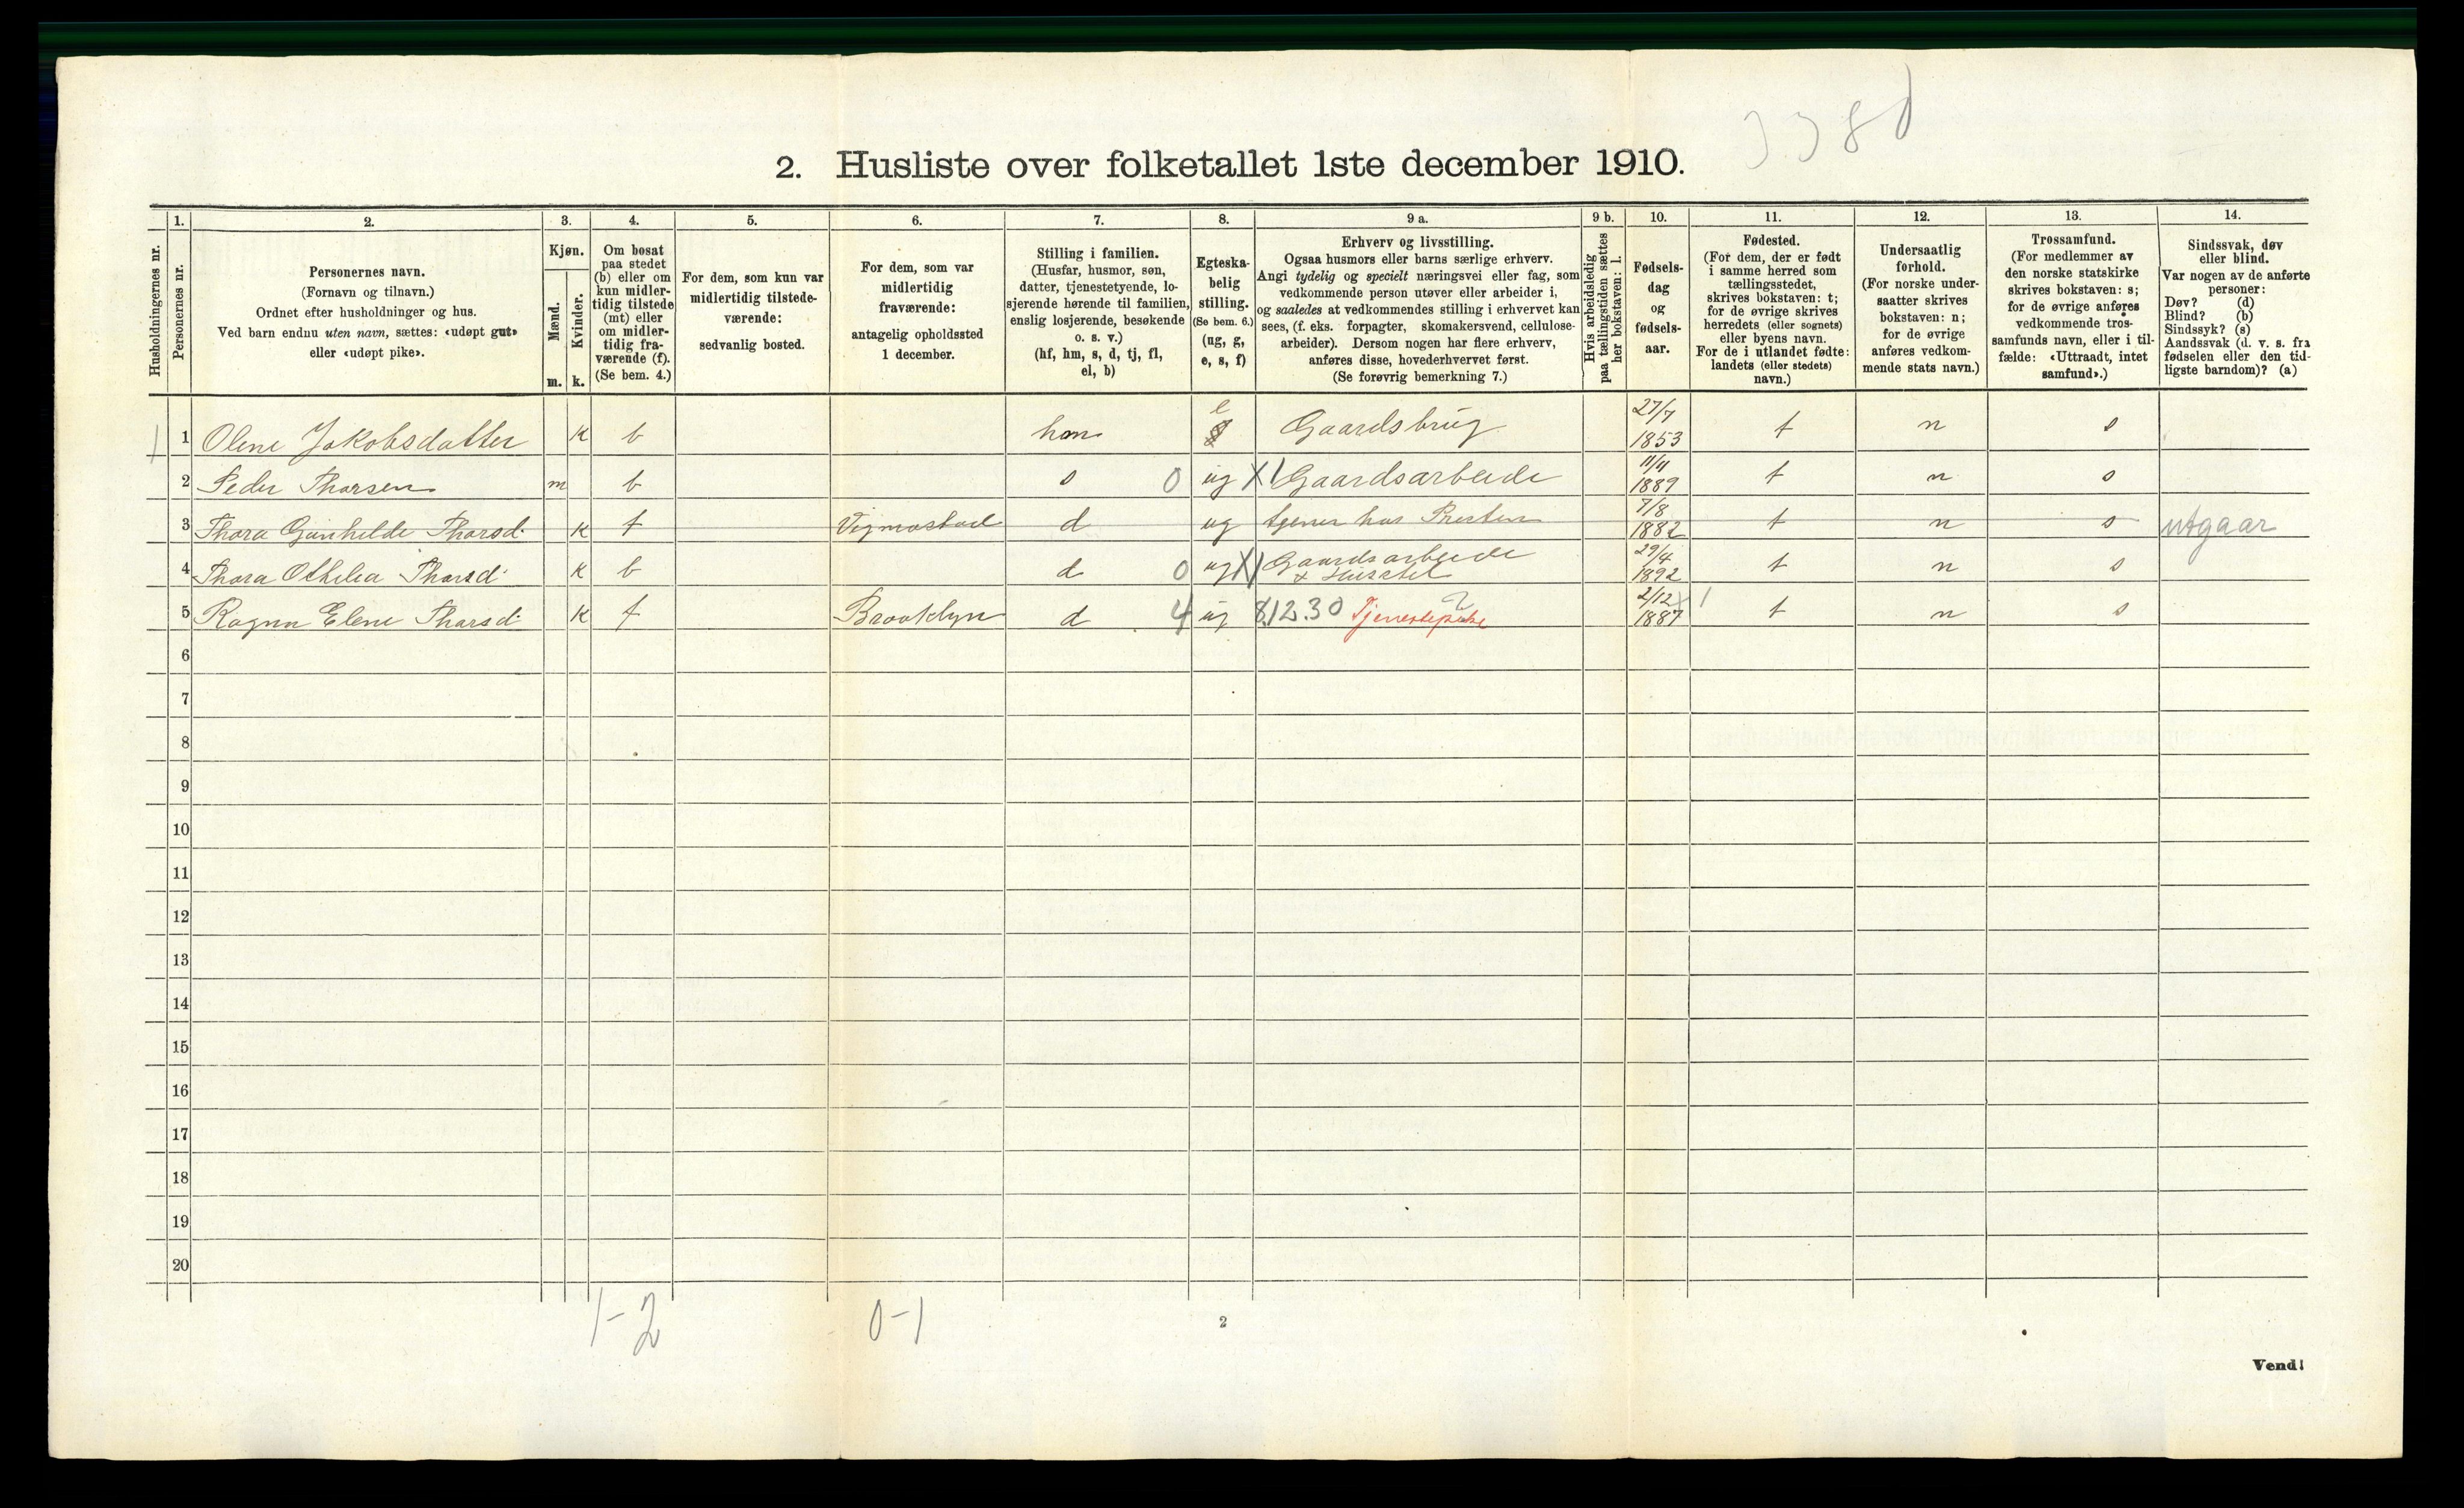 3380
2. Husliste over folketallet 1ste december 1910.
Husholdningernes nr.
1.
Personernes nr.
2.
Personernes navn.
(Fornavn og tilnavn.)
Ordnet efter husholdninger og hus.
Ved barn endnu uten navn, sættes: «udøpt gut»
eller «udøpt pike».
3.
Kjøn.
Mænd.
Kvinder.
m. k.
4.
Om bosat
paa stedet
(b) eller om
kun midler-
tidig tilstede
(mt) eller
om midler-
tidig fra-
værende (f).
(Se bem. 4.)
5.
For dem, som kun var
midlertidig tilstede-
værende:
sedvanlig bosted.
6.
For dem, som var
midlertidig
fraværende:
antagelig opholdssted
1 december.
7.
Stilling i familien.
(Husfar, husmor, søn,
datter, tjenestetyende, lo-
sjerende hørende til familien,
enslig losjerende, besøkende
o. s. v.)
(hf, hm, s, d, tj, fl,
el, b)
8.
Egteska-
belig
stilling.
(Se bem. 6.)
(ug, g,
e, s, f)
9 a.
Erhverv og livsstilling.
Ogsaa husmors eller barns særlige erhverv.
Angi tydelig og specielt næringsvei eller fag, som
vedkommende person utøver eller arbeider i,
og saaledes at vedkommendes stilling i erhvervet kan
sees, (f. eks. forpagter, skomakersvend, cellulose-
arbeider). Dersom nogen har flere erhverv,
anføres disse, hovederhvervet først.
(Se forøvrig bemerkning 7.)
9 b.
Hvis arbeidsledig
paa tællingstiden sættes
her bokstaven: l.
10.
Fødsels-
dag
og
fødsels-
aar.
11.
Fødested.
(For dem, der er født
i samme herred som
tællingsstedet,
skrives bokstaven: t;
for de øvrige skrives
herredets (eller sognets)
eller byens navn.
For de i utlandet fødte:
landets (eller stedets)
navn.)
12.
Undersaatlig
forhold.
(For norske under-
saatter skrives
bokstaven: n;
for de øvrige
anføres vedkom-
mende stats navn.)
13.
Trossamfund.
(For medlemmer av
den norske statskirke
skrives bokstaven: s;
for de øvrige anføres
vedkommende tros-
samfunds navn, eller i til-
fælde: «Uttraadt, intet
samfund».)
14.
Sindssvak, døv
eller blind.
Var nogen av de anførte
personer:
Døv? (d)
Blind? (b)
Sindssyk? (s)
Aandssvak (d. v. s. fra
fødselen eller den tid-
ligste barndom)? (a)
1 1 Olene Jakobsdatter k b hm e Gaardsbrug 27/7 1853 t n s
2 Peder Tharsen m b s 0 ug X1 Gaardsarbeide 11/4 1889 t n s
3 Thora Gunhilde Tharsd. k f Vigmostad d ug tjener hos Presten 7/8 1882 t n s utgaar
4 Thora Othilia Tharsd. k b d 0 ug X1 Gaardsarbeide & Husstel 29/4 1892 t n s
5 Ragna Elene Tharsd. k f Brooklyn d 4 ug 812.30 Tjenestepike 2 2/12 1887 1 t n s
6
7
8
9
10
11
12
13
14
15
16
17
18
19
20
1-2
0-1
2
Vend!